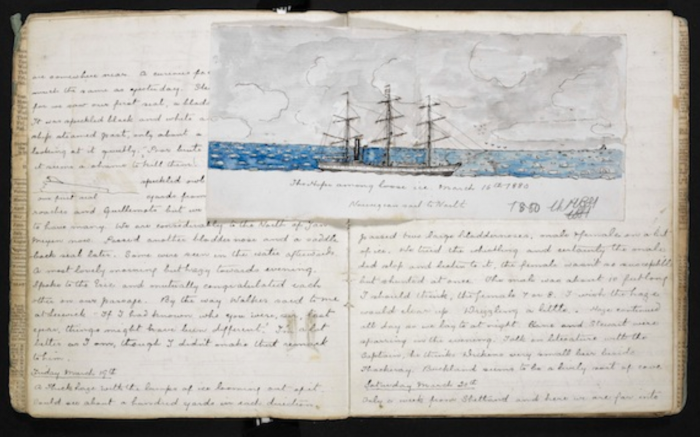 are somewhere near. A
much the same as yesterday.
for we saw our first seal, a
It was speckled black and white
ship steamed past, only about a
looking at it quietly. Poor brute
it seems a shame to kill them
speckled owl
our first seal yards from
roaches and Guillemots but we
to have many. We are considerably to the North of Jan
Meyen now. Passed another bladdernose and a saddle
back seal later. Some were seen in the water afterwards.
A most lovely morning but hazy towards evening.
Spoke to the Eric and mutually congratulated each
other on our passage. By the way Walker said to me
at Lerwick "If I had known who you were, sir, last
year, things might have been different." I'm a lot
better as I am, though I didn't make that remark
to him.
Friday March 19th
A thick haze with the lumps of ice looming out of it
Could see about a hundred yards in each direction.
The Hope among loose ice March 16th 1880
Norwegian sail to North
1880
Passed two large bladdernoses, male & female on a bit
of ice. We tried the whistling and certainly the male
did stop and listen to it, the female wasn't so susceptible
but shunted at once. The male was about 10 feet long
I should think, the female 7 or 8. I wish the haze
would clear up. Drizzling a little. Haze continued
all day so we lay to at night. Colin and Stewart were
sparring in the evening. Talk on literature with the
Captain, he thinks Dickens very small beer beside
Thackeray. Buckland seems to be a lively sort of cove
Saturday March 20th
Only a week from Shetland and here we are far into